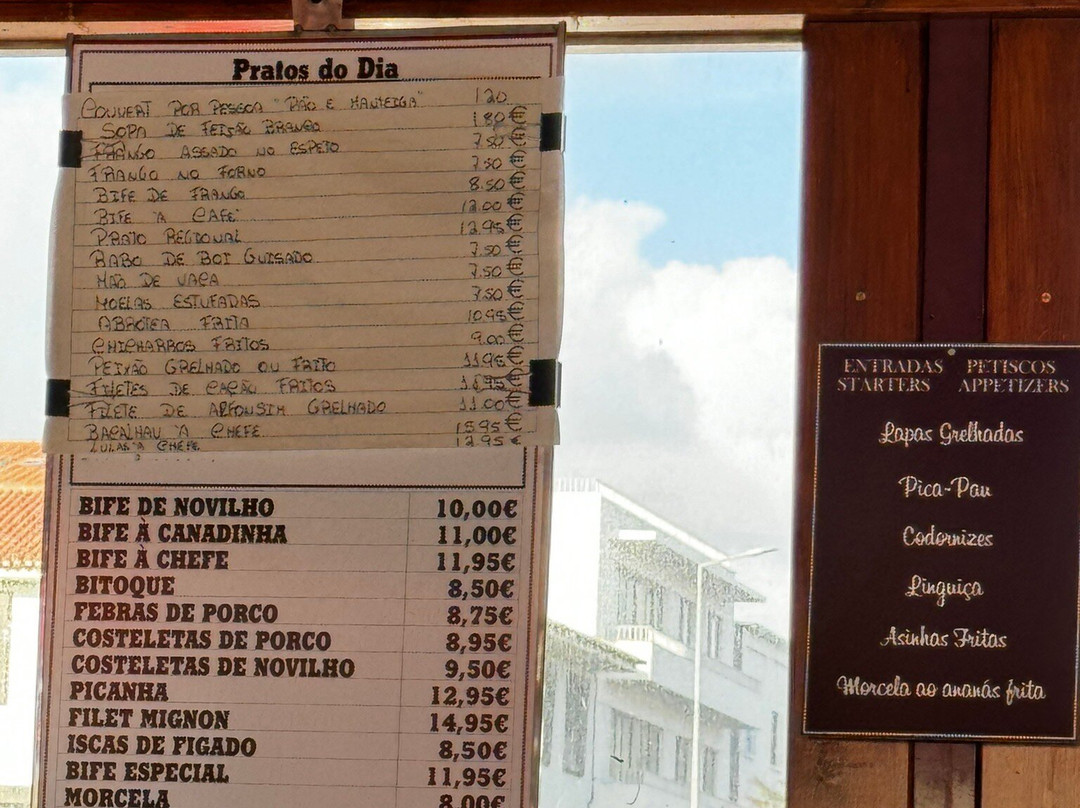 Pratos do Dia
COUVERT POR PESSOA "PÃO E MANTEIGA" 1 20
SOPA DE FEIJÃO BRANCO 1.80€
FRANGO ASSADO NO ESPETO 7.50€
FRANGO NO FORNO 7.50€
BIFE DE FRANGO 8.50€
BIFE "A CAFÉ" 12.00€
PRATO REGIONAL 12.95€
RABO DE BOI GUISADO 7.50€
MÃO DE VACA 7.50€
MOELAS ESTUFADAS 7.50€
ABROTEA FRITA 10.95€
CHICHARROS FRITOS 9.00€
PEIXÃO GRELHADO OU FRITO 11.95€
FILETES DE CAÇÃO FRITOS
FILETE DE ALFONSIM GRELHADO 11.00€
BACALHAU "A CHEFE 15.95€
LULAS "A CHEFE 12.95€
BIFE DE NOVILHO 10,00€
BIFE À CANADINHA 11,00€
BIFE À CHEFE 11,95€
BITOQUE 8,50€
FEBRAS DE PORCO 8,75€
COSTELETAS DE PORCO 8,95€
COSTELETAS DE NOVILHO 9,50€
PICANHA 12,95€
FILET MIGNON 14,95€
ISCAS DE FIGADO 8,50€
BIFE ESPECIAL 11,95€
MORCELA 8,00€
ENTRADAS PETISCOS
STARTERS APPETIZERS
Lapas Grelhadas
Pica-Pau
Codornizes
Linguiça
Asinhas Fritas
Morcela ao ananás frita